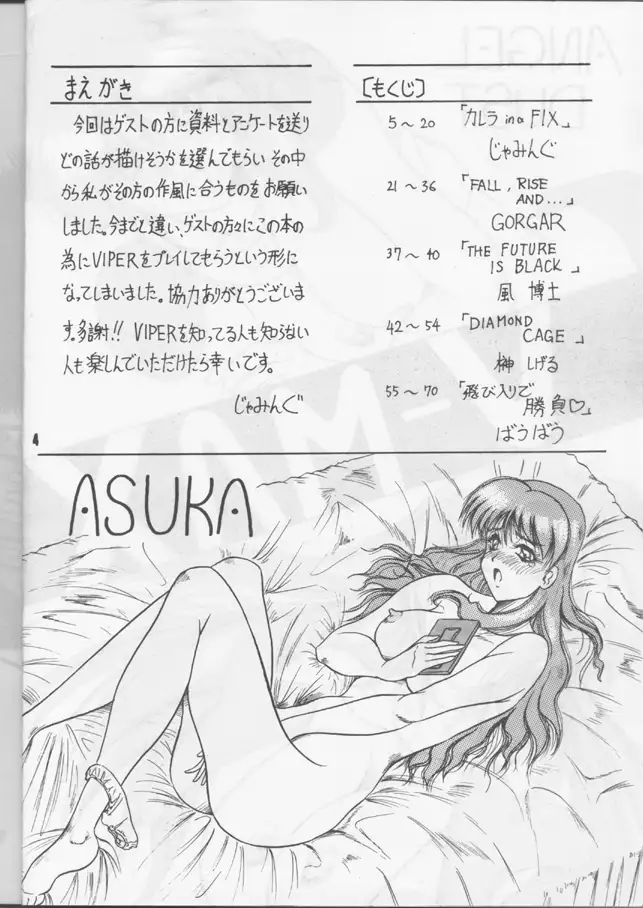 まえがき
今回はゲストの方に資料とアンケートを送り
どの話が描けそうかを選んでもらい その中
から私がその方の作風に合うものをお願い
しました。今までと違い、ゲストの方々にこの本の
為にVIPERをプレイしてもらうという形に
なってしまいました。協力ありがとうございま
す。多謝!! VIPERを知ってる人も知らない
人も楽しんでいただけたら幸いです。
じゃみんぐ
[もくじ]
5〜20 「カレラ in a FIX」
じゃみんぐ
21〜36 「FALL, RISE
AND...」
GORGAR
37〜40 「THE FUTURE
IS BLACK」
風 博士
42〜54 「DIAMOND
CAGE」
榊 しげる
55〜70 「飛び入りで
勝負♡」
ばうばう
4
ASUKA